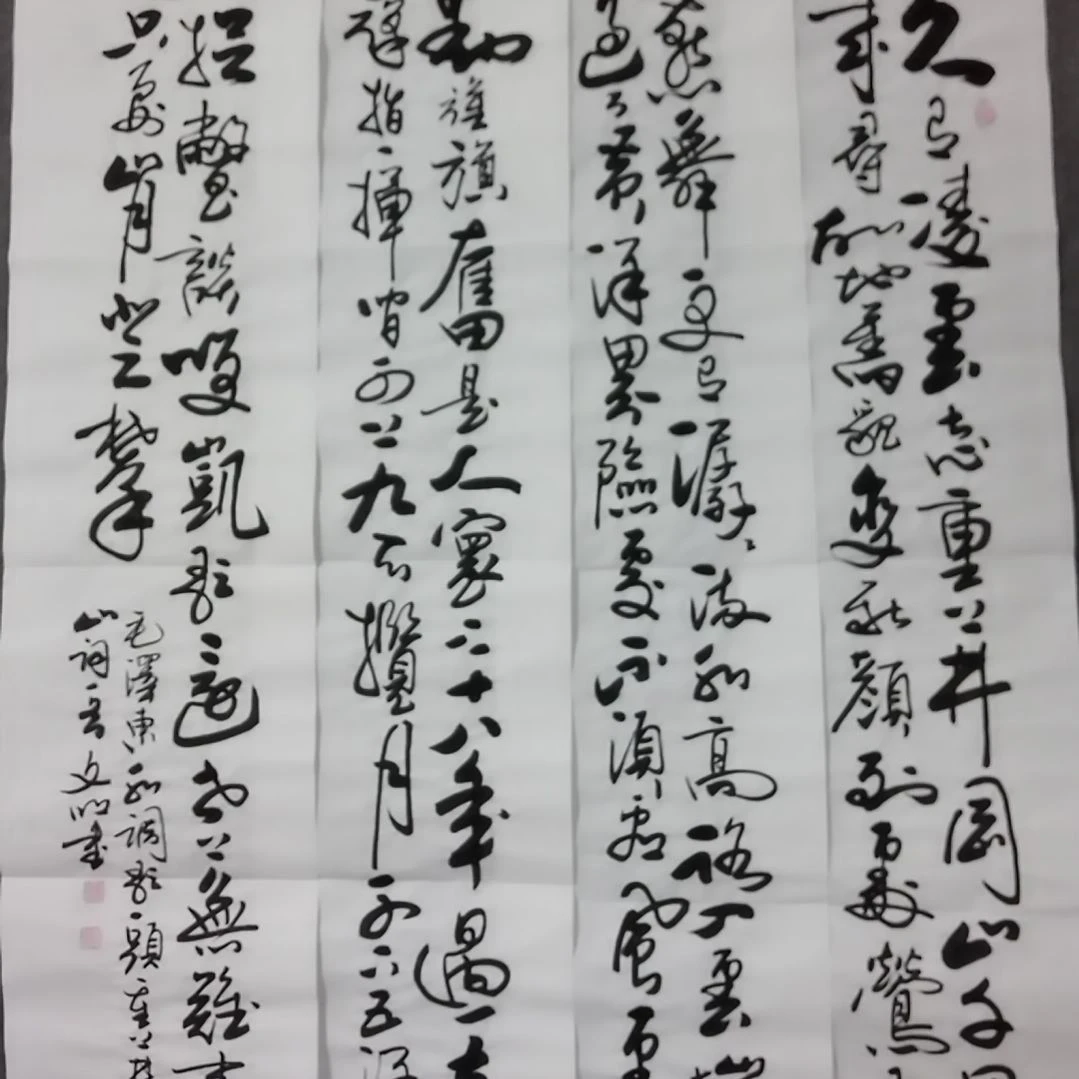 久有凌雲志重上井岡山千里
来尋故地舊貌變新顏到處鶯
燕舞更有潺潺流水高路入雲端
過了黃洋界險處不須看風雷
動旌旗奮是人寰三十八年過去
彈指一揮間可上九天攬月可下五洋
捉鱉談笑凱歌還世上無難事
只要肯登攀
毛澤東水調歌頭重上井
山詞一首文明書